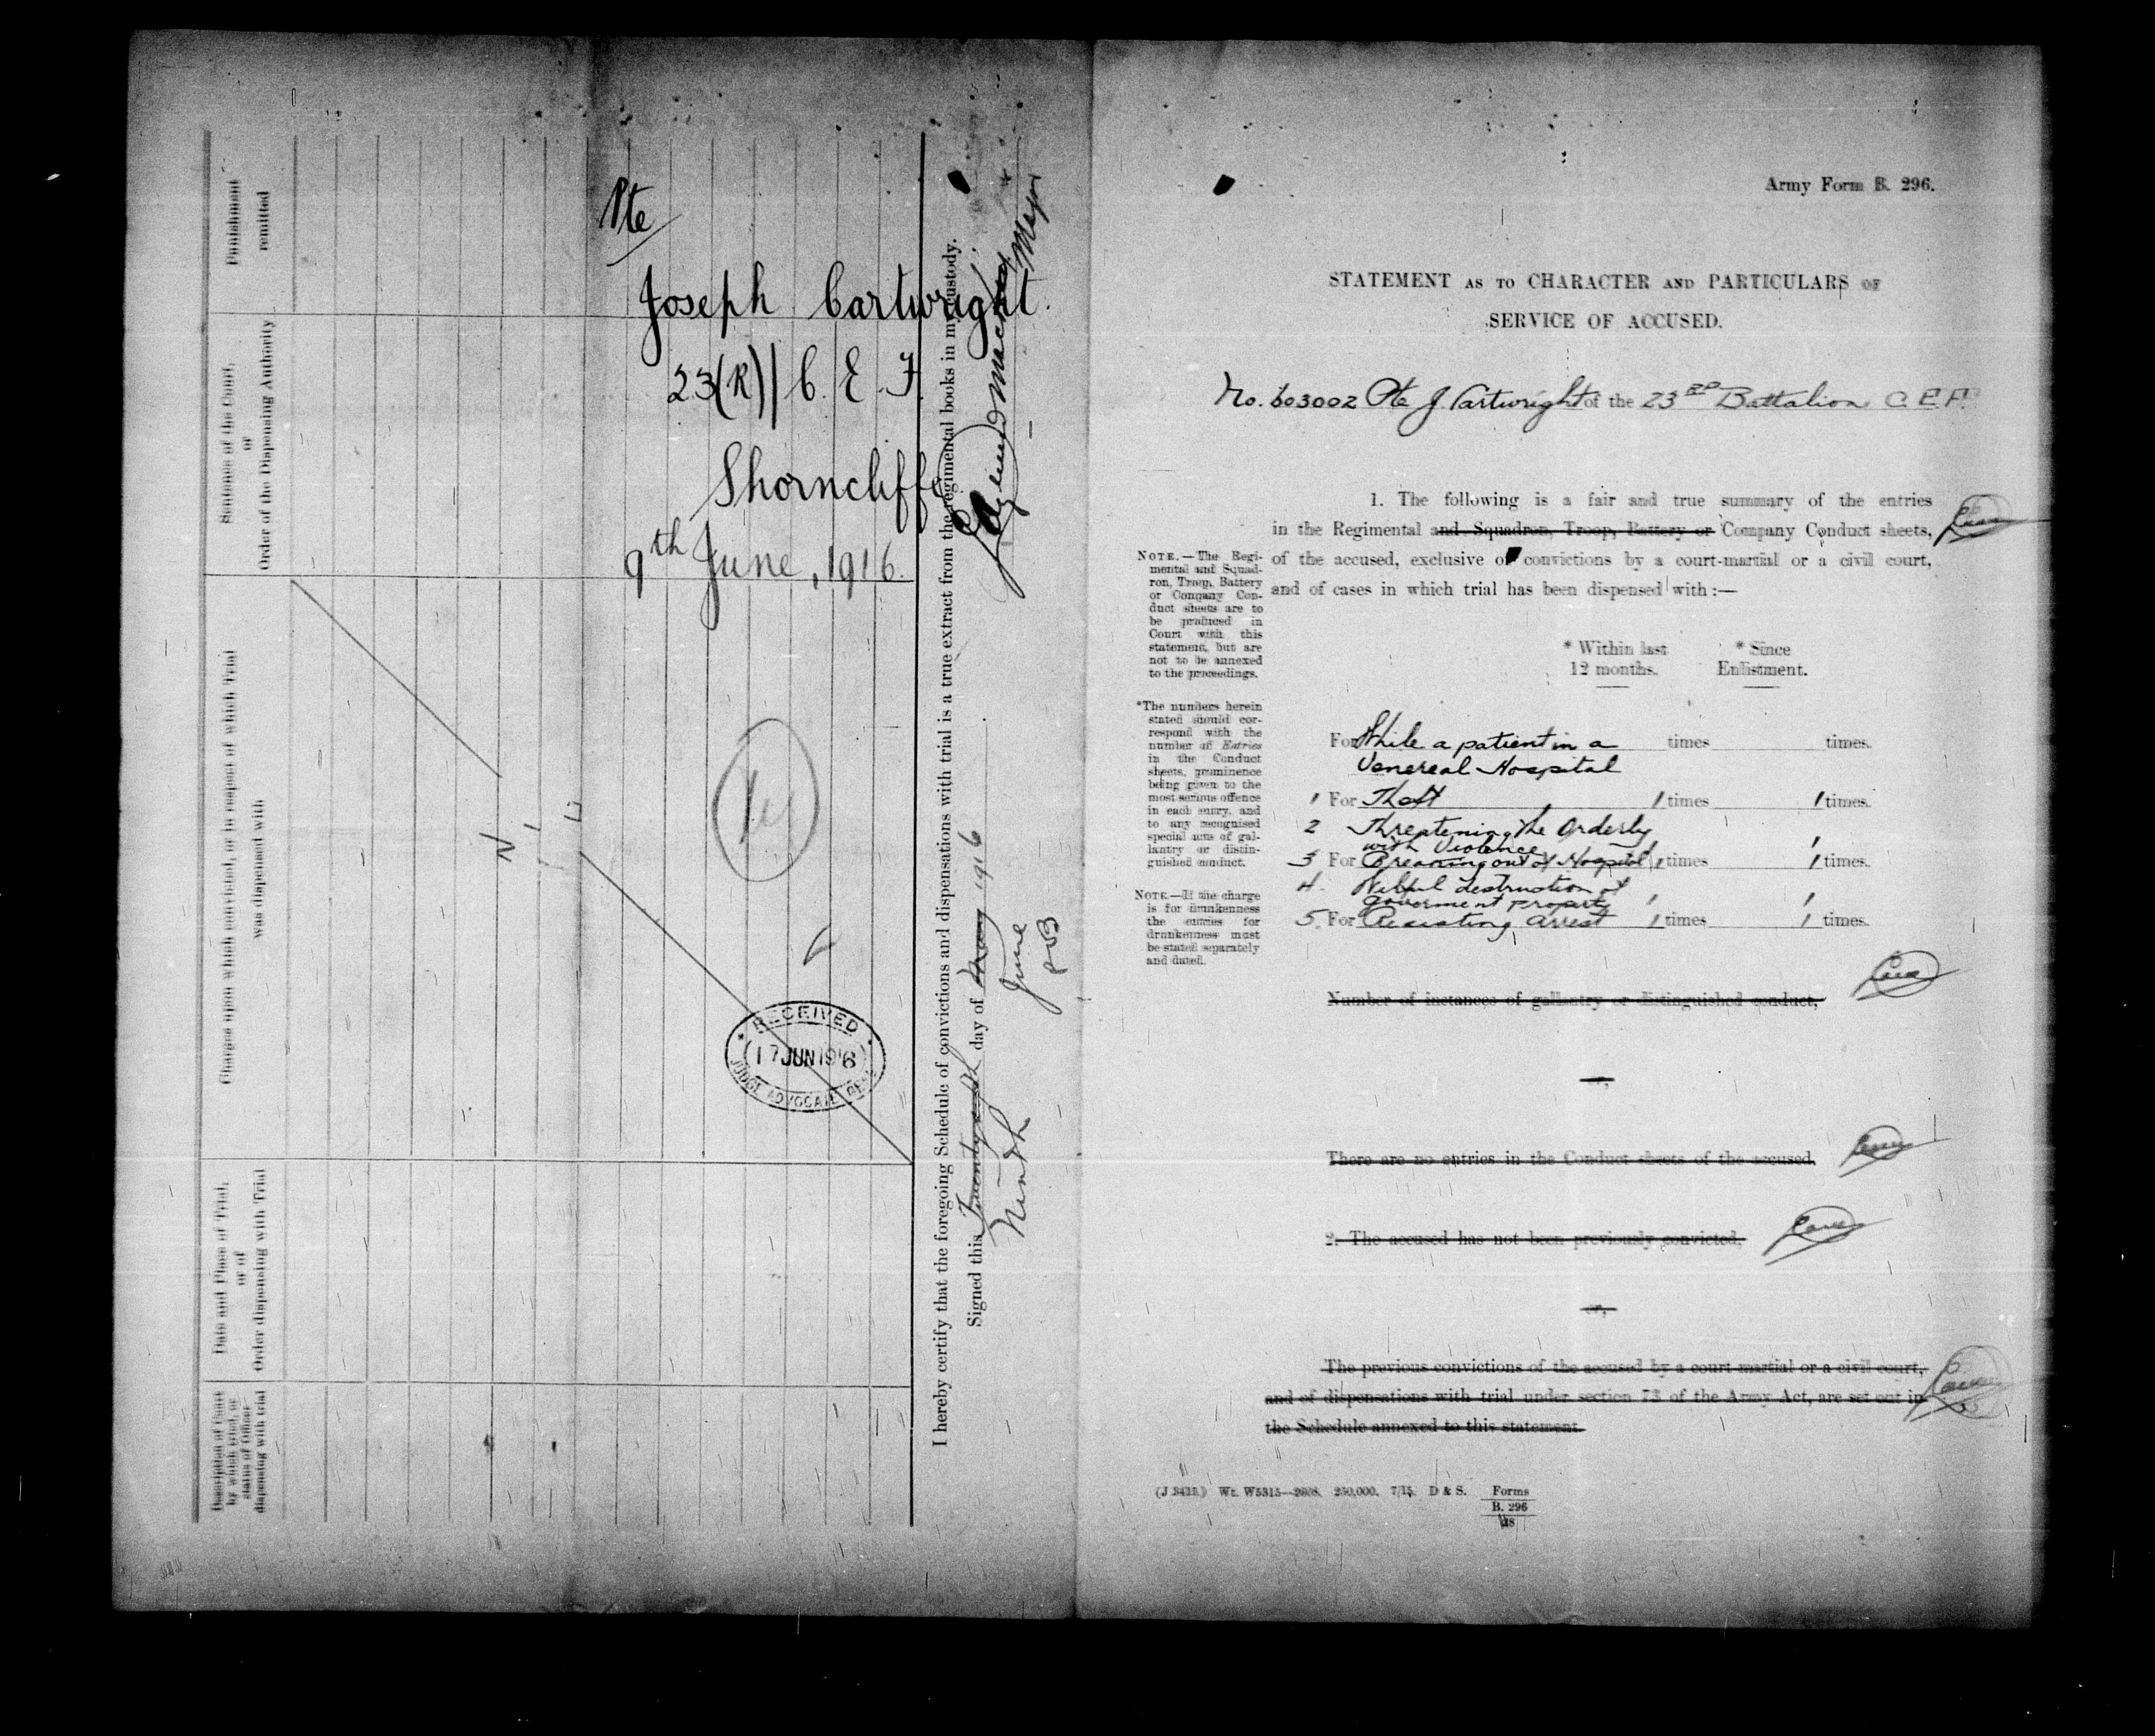 Punishment
remitted
Sentence of the Court,
or
Order of the Dispensing Authority
Charges upon which convicted, or in respect of which Trial
was dispensed with
Date and Place of Trial,
or of
Order dispensing with Trial
Description of Court
by which tried, or
status of Officer
dispensing with trial
Pte
Joseph Cartwright.
23(R)| C. E. F.
Shorncliffe
9th June, 1916.
N I L
RECEIVED
17 JUN 1916
JUDGE ADVOCATE
I hereby certify that the foregoing Schedule of convictions and dispensations with trial is a true extract from the regimental books in my custody.
Signed this day of May 1916
Ninth June
Major
Army Form B. 296.
STATEMENT AS TO CHARACTER AND PARTICULARS OF
SERVICE OF ACCUSED.
No. 603002 Pte J. Cartwright of the 23RD Battalion C. E. F.
1. The following is a fair and true summary of the entries
in the Regimental and Squadron, Troop, Battery or Company Conduct sheets,
of the accused, exclusive of convictions by a court-martial or a civil court,
and of cases in which trial has been dispensed with:—
NOTE.—The Regi-
mental and Squad-
ron, Troop, Battery
or Company Con-
duct sheets are to
be produced in
Court with this
statement, but are
not to be annexed
to the proceedings.
*The numbers herein
stated should cor-
respond with the
number of Entries
in the Conduct
sheets, prominence
being given to the
most serious offence
in each entry, and
to any recognised
special acts of gal-
lantry or distin-
guished conduct.
NOTE.—If the charge
is for drunkenness
the entries for
drunkenness must
be stated separately
and dated.
* Within last * Since
12 months. Enlistment.
For While a patient in a times times.
Venereal Hospital
1 For Theft 1 times 1 times.
2 Threatening the Orderly
with Violence 1 1
3 For Breaking out of Hospital 1 times 1 times.
4. Wilful destruction of
goverment property 1 1
5. For Resisting arrest 1 times 1 times.
Number of instances of gallantry or distinguished conduct,
or,
There are no entries in the Conduct sheets of the accused.
2. The accused has not been previously convicted.
or,
The previous convictions of the accused by a court martial or a civil court,
and of dispensations with trial under section 73 of the Army Act, are set out in
the Schedule annexed to this statement.
(J 3415.) Wt. W5315—2808. 250,000. 7/15. D & S. Forms
B. 296